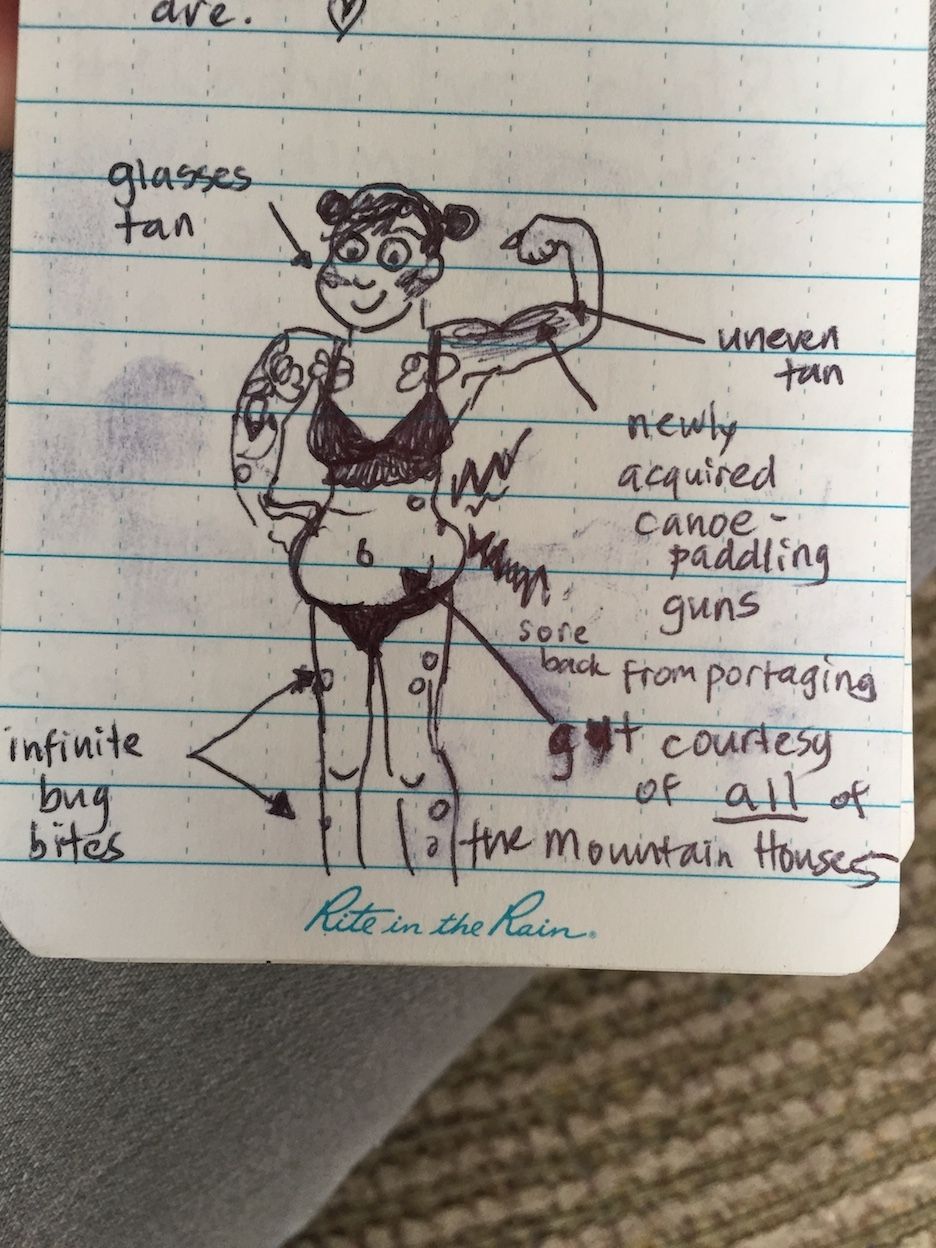 are. ♡
glasses
tan
uneven
tan
newly
acquired
canoe-
paddling
guns
sore
back from portaging
gut courtesy
of all of
the Mountain Houses
infinite
bug
bites
Rite in the Rain®